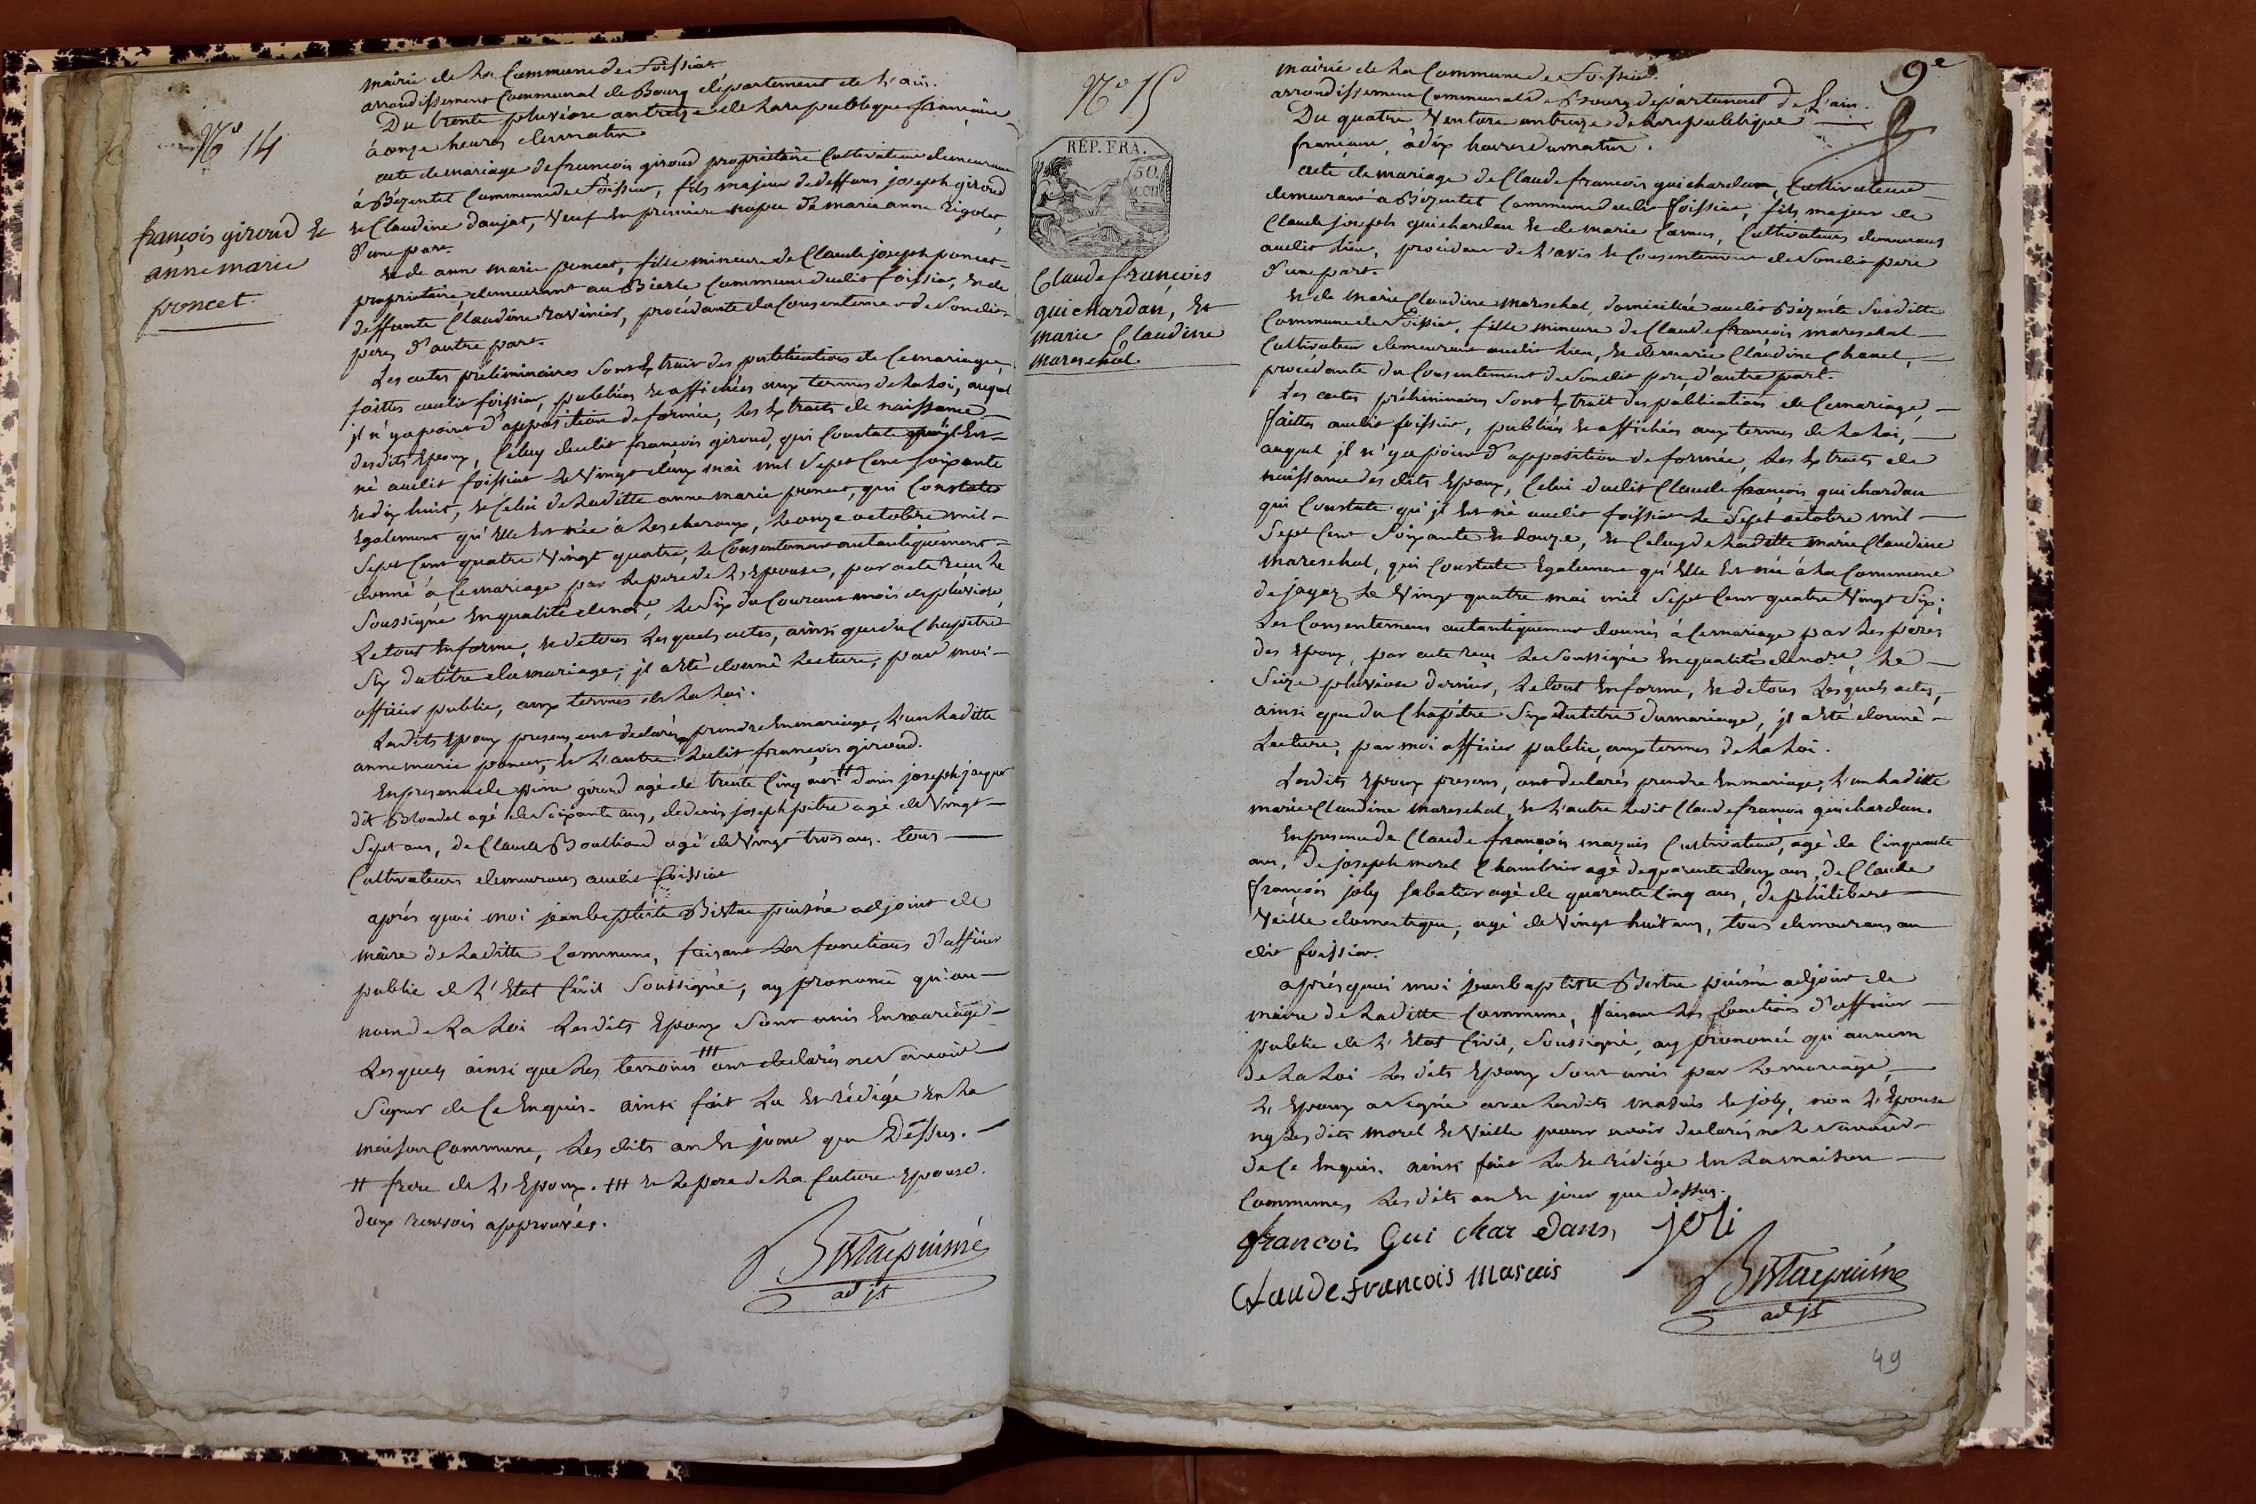 Mairie de la Commune de Foissiat
arrondissement Communal de Bourg département de l'ain.
Du trente pluviose an treize de la republique française
à onze heures du matin
N.º 14
acte de mariage de francois giroud propriétaire Cultivateur demeurant
à Bézentet Commune de Foissiat, fils majeur de deffuns joseph giroud
et Claudine daujat, Veuf en premiere nopce de marie anne Rigolet,
d'une part.
françois giroud et
anne marie
poncet
et de ann marie poncet, fille mineure de Claude joseph poncet
propriétaire demeurant au Biolle Commune dudit foissiat, et de
deffunte Claudine ravinier, procédante du Consentement de Son dit
pere, d'autre part.
Les actes préliminaires Sont Extrait des publications de Ce mariage,
faittes audit foissiat, publiées et affichées aux termes de la Loi, auquel
il n'y a point d'opposition de formée, les Extraits de naissance
desdits Epoux, Celuy dudit françois giroud, qui Constate qu'il Est
né audit foissiat le Vingt deux mai mil Sept Cent Soixante
et dix huit, et Celui de laditte anne marie poncet, qui Constate
Egalement qu'Elle Est née à Lescheroux, le onze octobre mil
Sept Cent quatre Vingt quatre, le Consentement autantiquement
donné à Ce mariage par le pere de l'Epouse, par acte reçu le
Soussigné En qualité de nore, le Six du Courant mois de pluviose,
Le tout En forme, et de tous lesquels actes, ainsi que du Chapitre
Six du titre du mariage, il a Eté donné lecture, par moi
officier public, aux termes de la Loi.
Lesdits Epoux presens ont declarés prendre En mariage, l'un laditte
anne marie poncet, et l'autre ledit françois giroud.
En presence de pierre giroud agé de trente Cinq ans ++ denis joseph jaque
dit Blondel agé de Soixante ans, de denis joseph pitre agé de Vingt
Sept ans, de Claude Boulliond agé de Vingt trois ans. tous
Cultivateurs demeurans audit foissiat
après quoi moi jean baptiste Bistac puisné adjoint de
maire de laditte Commune, faisant les fonctions d'officier
public de l'Etat Civil Soussigné, ay prononcé qu'au
nom de la Loi lesdits Epoux Sont unis En mariage
Lesquels ainsi que les temoins +++ ont declarés ne Savoir
Signer de Ce Enquis. ainsi fait lu et rédigé En la
maison Commune, les dits an et jour que Dessus.
++ frere de l'Epoux. +++ et le pere de la future Epouse.
deux renvois approuvés.
Bistac puisné
adjt
9e
N.º 15
RÉP. FRA.
Claude francois
guichardan, et
marie Claudine
mareschal
mairie de la Commune de Foissiat.
arrondissement Communal de Bourg departement de l'ain.
Du quatre Ventose an treize de la republique
française, à dix heures du matin.
acte de mariage de Claude francois guichardan, Cultivateur
demeurant à Bézentet Commune dudit foissiat, fils majeur de
Claude joseph guichardan et de marie Camus, Cultivateurs demeurans
audit lieu, procédant de l'avis et Consentement de Son dit pere
d'une part.
et de marie Claudine mareschal, domiciliée audit Bézentet Susditte
Commune de Foissiat, fille mineure de Claude françois mareschal
Cultivateur demeurant audit lieu, et de marie Claudine Chanel,
procédante du Consentement de Son dit pere, d'autre part.
Les actes préliminaires Sont Extrait des publications de Ce mariage,
faittes audit foissiat, publiées et affichées aux termes de la Loi,
auquel il n'y a point d'opposition de formée, les Extraits de
naissance des dits Epoux, Celui dudit Claude françois guichardan
qui Constate qu'il Est né audit foissiat le Sept octobre mil
Sept Cent Soixante et douze, et Celuy de laditte marie Claudine
mareschal, qui Constate Egalement qu'Elle Est née à la Commune
de jayaz le Vingt quatre mai mil Sept Cent quatre Vingt Six;
les Consentemens autantiquement donnés à Ce mariage par les peres
des Epoux, par acte reçu le Soussigné En qualité de nore, le
Seize pluviose dernier, le tout En forme, et de tous lesquels actes,
ainsi que du Chapitre Six du titre du mariage, il a Eté donné
Lecture, par moi officier public, aux termes de la Loi.
Lesdits Epoux presens, ont declarés prendre En mariage, l'un laditte
marie Claudine mareschal, et l'autre ledit Claude françois guichardan.
En presence de Claude françois mazuis Cultivateur, agé de Cinquante
ans, de joseph morel Chambrier agé de quarente deux ans, de Claude
françois joly Sabatier agé de quarente Cinq ans, de philibert
Veille domestique, agé de Vingt huit ans, tous demeurans au
dit foissiat.
après quoi moi jean baptiste Bistac puisné adjoint de
maire de laditte Commune, faisant les fonctions d'officier
public de l'Etat Civil, Soussigné, ay prononcé qu'au nom
de la Loi les dits Epoux Sont unis par le mariage,
L'Epoux a Signé avec lesdits masuis et joly, non l'Epouse
ny les dits morel et Veille pour avoir declarés ne le Savoir
de Ce Enquis. ainsi fait lu et rédigé En la maison
Commune, les dits an et jour que dessus.
francois Gui char dans joli
Claude francois Mascuis
Bistac puisné
adjt
49